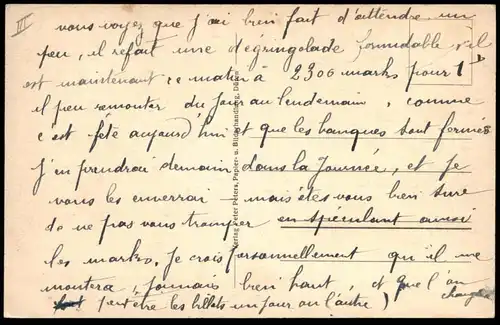 III
vous voyez que j'ai bien fait d'attendre un
peu, il refait une dégringolade formidable, il
est maintenant ce matin à 2300 marks pour 1
il peu remonter du jour au lendemain, comme
c'est fête aujourd'hui et que les banques sont fermés
j'en prendrai demain dans la journée, et je
vous les enverrai - mais êtes vous bien sure
de ne pas vous tromper en spéculant aussi
les marks. Je crois personnellement qu'il ne
montera jamais bien haut, et que l'on changera
peut être les billets un jour ou l'autre)
Verlag Peter Peters, Papier- u. Bilderhandlung, Dü